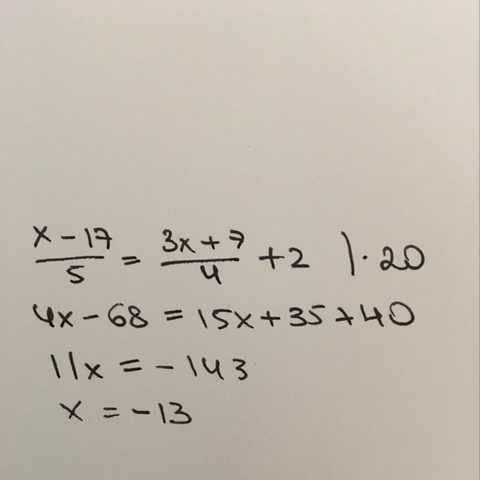 x - 17 / 5 = 3x + 7 / 4 + 2 | · 20
4x - 68 = 15x + 35 + 40
11x = - 143
x = - 13